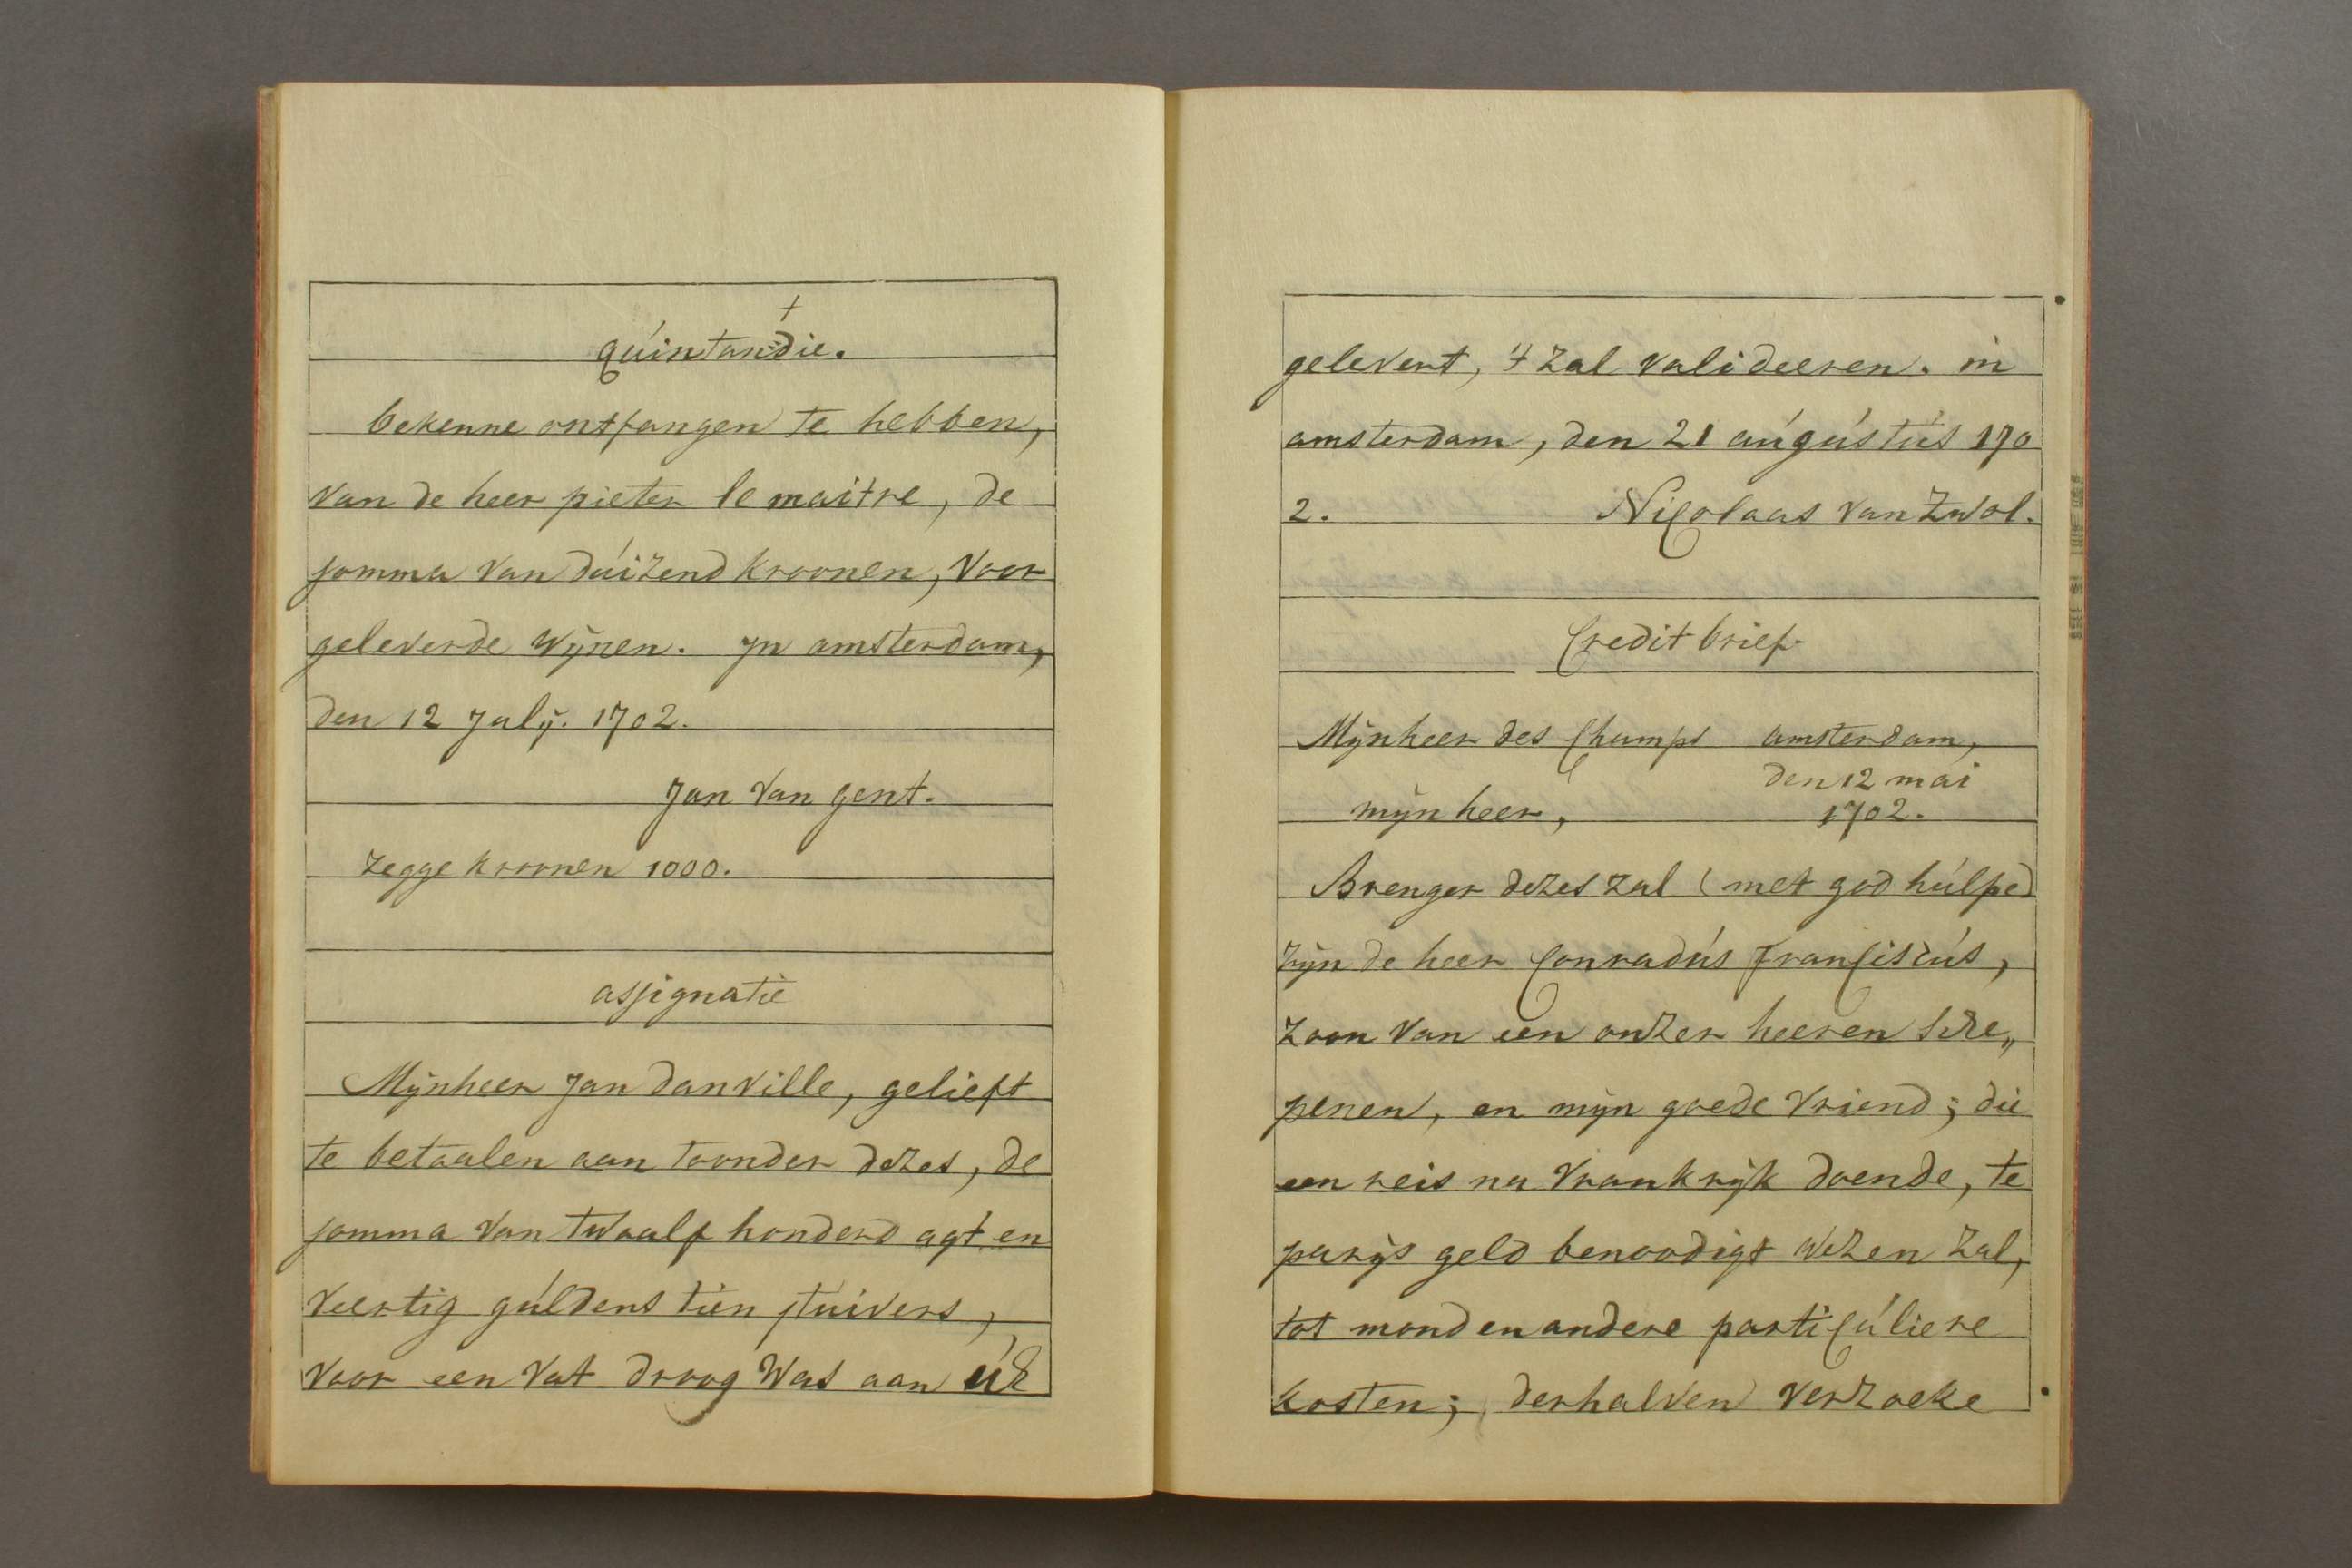 quintandie.
bekenne ontfangen te hebben,
van de heer pieter le maitre, de
somma van dúizend kroonen, voor
geleverde wijnen. Jn amsterdam,
den 12 July. 1702.
Jan van gent.
zegge kroonen 1000.
assignatie
Mijnheer Jan danville, gelieft
te betaalen aan toonder dezes, de
somma van twaalf honderd agt en
veertig gúldens tien stúivers,
voor een vat droog was aan
gelevert, 't zal valideeren. in
amsterdam, den 21 aúgústús 170
2. Nicolaas van Zwol.
Credit brief
Mijnheer des Champs amsterdam,
den 12 mai
mijn heer, 1702.
Brenger dezes zal (met god húlpe)
zijn de heer Conradús Franciscús,
zoon van een onzer heeren sche„
penen, en mijn goede vriend; die
een reis na vrankrijk doende, te
parijs geld benoodigt wezen zal,
tot mond en andere particúliere
kosten; derhalven verzoeke